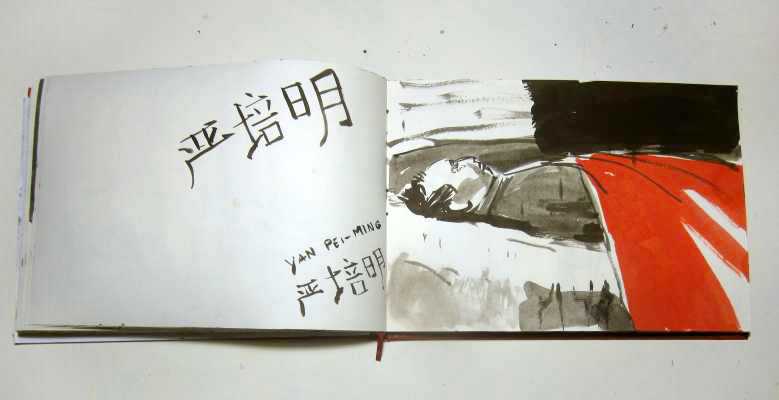 严培明
YAN PEI-MING
严培明